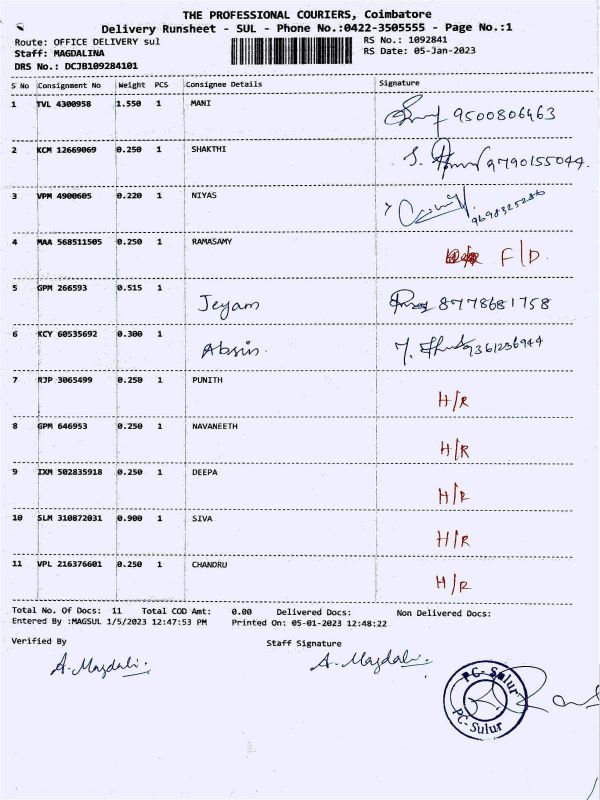 THE PROFESSIONAL COURIERS, Coimbatore
Delivery Runsheet - SUL - Phone No.:0422-3505555 - Page No.:1
Route: OFFICE DELIVERY sul
RS No.: 1092841
Staff: MAGDALINA
RS Date: 05-Jan-2023
DRS No.: DCJB109284101
S No Consignment No Weight PCS Consignee Details Signature
1 TVL 4300958 1.550 1 MANI 9500806463
2 KCM 12669069 0.250 1 SHAKTHI 9790155044.
3 VPM 4900605 0.220 1 NIYAS 9698325286
4 MAA 568511505 0.250 1 RAMASAMY F/D.
5 GPM 266593 0.515 1 Jeyam 8778681758
6 KCY 60535692 0.300 1 Absin. 9361236944
7 RJP 3065499 0.250 1 PUNITH H/R
8 GPM 646953 0.250 1 NAVANEETH H/R
9 IXM 502835918 0.250 1 DEEPA H/R
10 SLM 310872031 0.900 1 SIVA H/R
11 VPL 216376601 0.250 1 CHANDRU H/R
Total No. Of Docs: 11 Total COD Amt: 0.00 Delivered Docs: Non Delivered Docs:
Entered By :MAGSUL 1/5/2023 12:47:53 PM Printed On: 05-01-2023 12:48:22
Verified By Staff Signature
A. Magdali. A. Magdali.
PC-Sulur
PC-Sulur